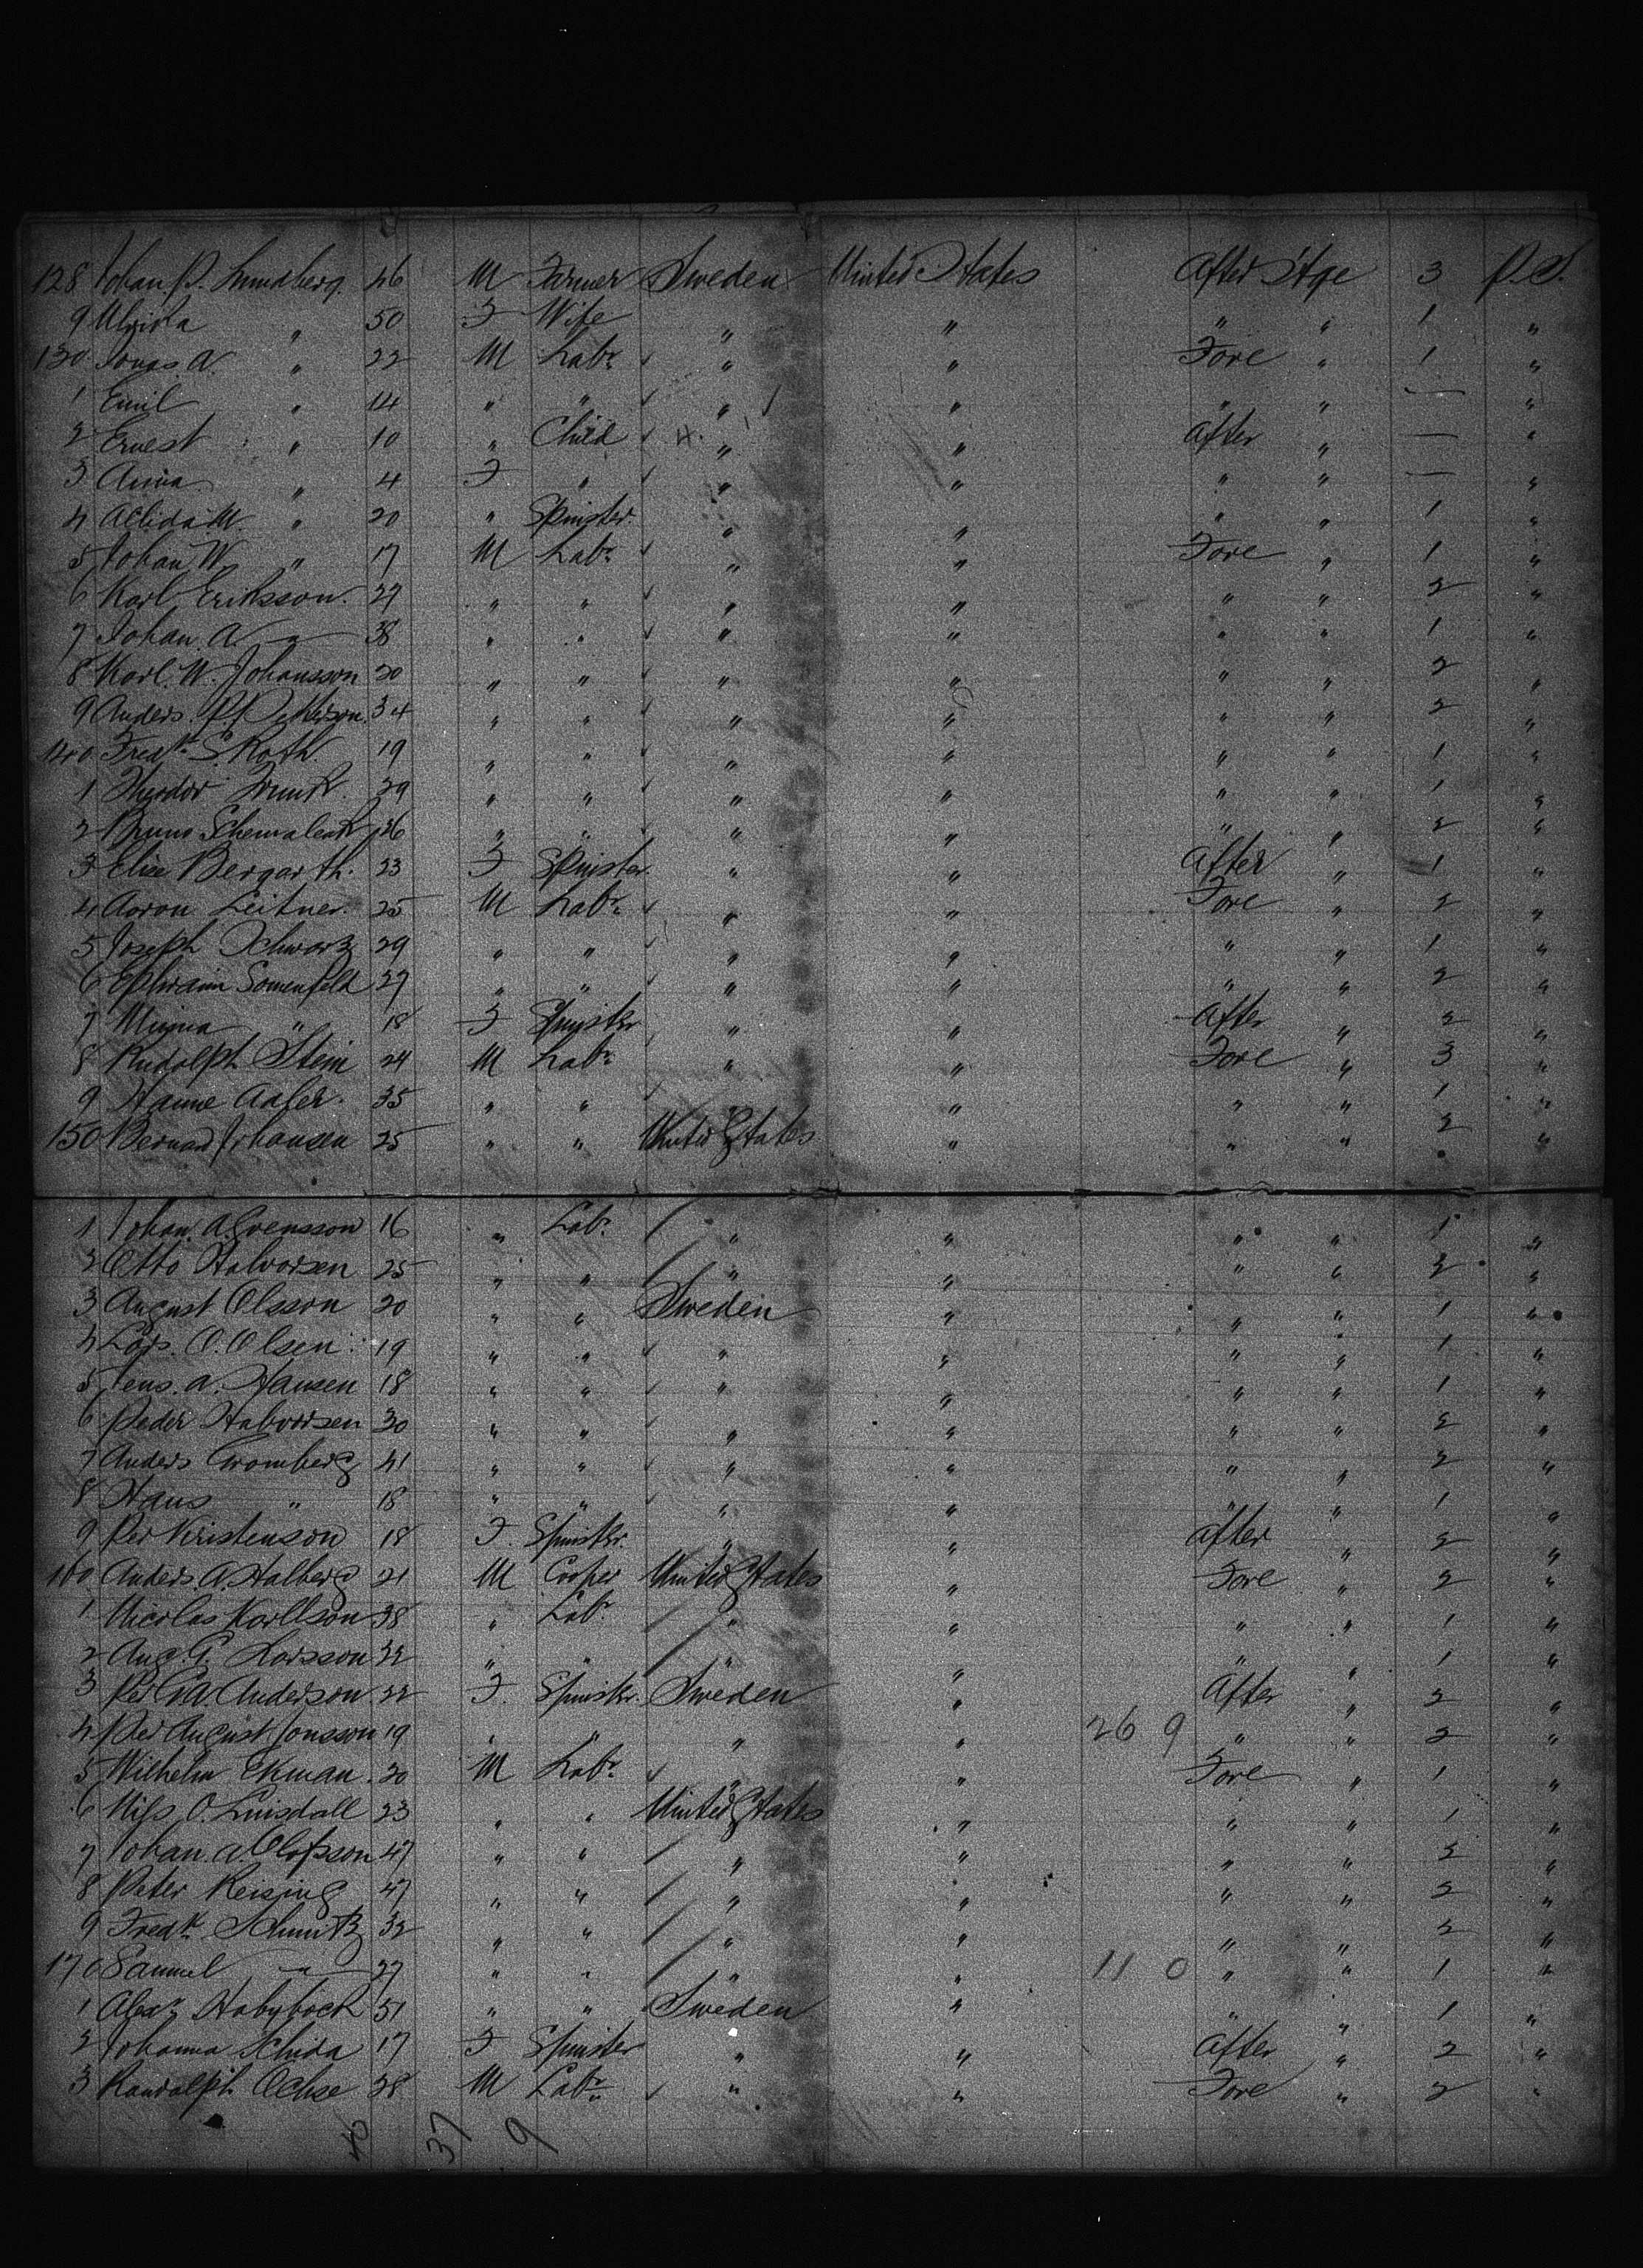 128 Johan P. Lundberg. 46 M Farmer Sweden United States After Stge 3 P.S.
9 Ulrika " 50 F Wife " " " " 1 "
130 Jonas. A. " 22 M Labr " " Fore " 1 "
1 Emil " 14 " " " " " " — "
2 Ernest " 10 " Child " " After " — "
3 Anna " 4 F " " " " " — "
4 Allida M. " 20 " Spinster. " " " " 1 "
5 Johan W. " 17 M Labr " " Fore " 1 "
6 Karl Eriksson. 27 " " " " " " 2 "
7 Johan. A. " 38 " " " " " " 1 "
8 Karl. W. Johansson 20 " " " " " " 2 "
9 Anders. P. Petterson. 34 " " " " " " 2 "
140 Fredk S. Roth. 19 " " " " " " 1 "
1 Theodor 39 " " " " " " 1 "
2 Bruno 36 " " " " " " 2 "
3 Elise Bergarth. 23 F Spinster. " " After " 1 "
4 Aaron Leitner. 25 M Labr " " Fore " 2 "
5 Joseph Schwarz 29 " " " " " " 1 "
6 Ephraim Somenfeld 27 " " " " " " 2 "
7 " 18 F Spinster " " After " 2 "
8 Rudolph Stein 24 M Labr " " Fore " 3 "
9 Hanne 35 " " " " " " 1 "
150 Bernard Johansen 25 " " United States " " " 2 "
1 Johan. A. Svensson 16 " Labr " " " " 1 "
2 Otto Halvorsen 25 " " " " " " 2 "
3 August Olsson 20 " " Sweden " " " 1 "
4 Lars. O. Olsen 19 " " " " " " 1 "
5 Jens. A. Hansen 18 " " " " " " 1 "
6 Peder Halvorsen 30 " " " " " " 2 "
7 Anders Cromberg 41 " " " " " " 2 "
8 Hans " 18 " " " " " " 1 "
9 Per Kristenson 18 F. Spinster. " " After " 2 "
160 Anders A. Halberg 21 M Cooper United States " Fore " 2 "
1 Nicolas Karllson 38 " Labr " " " " 1 "
2 Aug. G. Larsson 32 " " " " " " 1 "
3 Per Anderson. 22 F. Spinster. Sweden " After " 2 "
4 Per August Jonsson 19 " " " " 26 9 " " 2 "
5 Wilhelm Ekman. 20 M Labr " " Fore " 1 "
6 Nils. O. 23 " " United States " " " 1 "
7 Johan. A. Olofsson 47 " " " " " " 2 "
8 Peter Reising 47 " " " " " " 2 "
9 Fredk Schmitz 32 " " " " " " 2 "
170 Samuel " 27 " " " " 11 0 " " 1 "
1 Alexr 51 " " Sweden " " " 1 "
2 Johanna 17 F Spinster " " After " 2 "
3 Randolph Ochse 28 M Labr " " Fore " 2 "
37 9